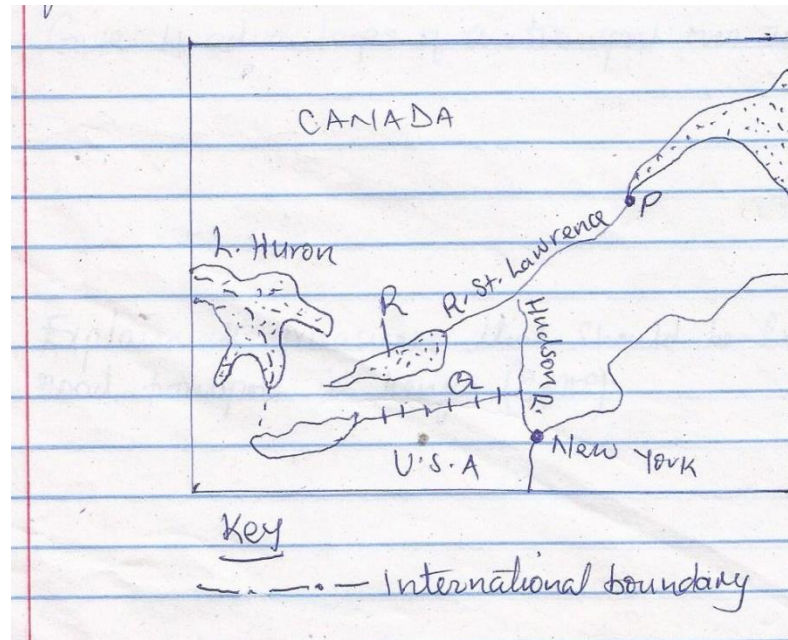 CANADA
L. Huron
P
R. St. Lawrence
R
Hudson R.
Q
New York
U.S.A
Key
International boundary